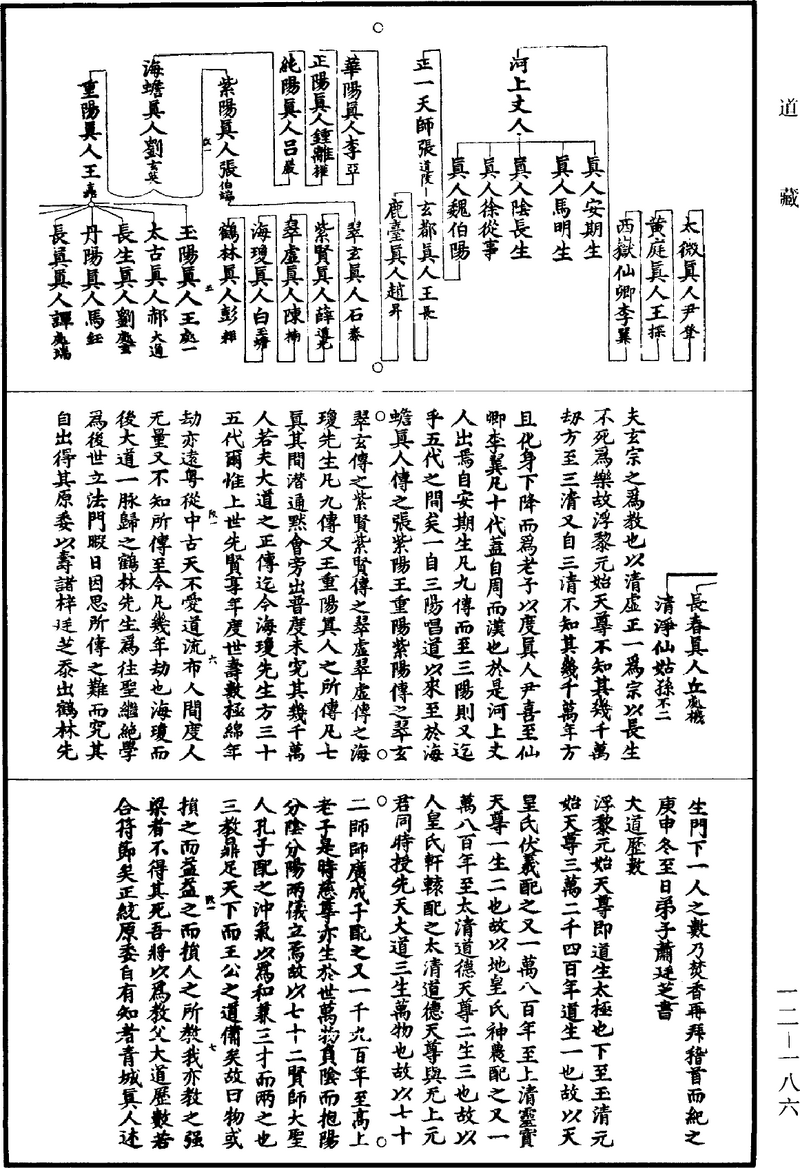 道藏
太微眞人尹登
黃庭眞人王探
西嶽仙卿李翼
河上丈人
眞人安期生
眞人馬明生
眞人陰長生
眞人徐從事
眞人魏伯陽
正一天師張道陵
玄都眞人王長
鹿臺眞人趙昇
華陽眞人李亞
正陽眞人鍾離權
純陽眞人呂巖
海蟾眞人劉玄英
紫陽眞人張伯端
重陽眞人王嚞
翠玄眞人石泰
紫賢眞人薛道光
翠虛眞人陳楠
海瓊眞人白玉蟾
鶴林眞人彭耜
玉陽眞人王處一
太古眞人郝大通
長生眞人劉處玄
丹陽眞人馬鈺
長眞眞人譚處端
長春眞人丘處機
清淨仙姑孫不二
夫玄宗之爲教也以清虛正一爲宗以長生
不死爲樂故浮黎元始天尊不知其幾千萬
劫方至三清又自三清不知其幾千萬年方
且化身下降而爲老子以度眞人尹喜至仙
卿李翼凡十代蓋自周而漢也於是河上丈
人出焉自安期生凡九傳而至三陽則又迄
乎五代之間矣一自三陽唱道以來至於海
蟾眞人傳之張紫陽王重陽紫陽傳之翠玄
翠玄傳之紫賢紫賢傳之翠虛翠虛傳之海
瓊先生凡九傳又王重陽眞人之所傳凡七
眞其間潛通默會旁出普度未究其幾千萬
人若夫大道之正傳迄今海瓊先生方三十
五代爾惟上世先賢享年度世壽數極綿年
劫亦遠粤從中古天不愛道流布人間度人
无量又不知所傳至今凡幾年劫也海瓊而
後大道一脉歸之鶴林先生爲往聖繼絕學
爲後世立法門暇日因思所傳之難而究其
自出得其原委以壽諸梓廷芝忝出鶴林先
生門下一人之數乃焚香再拜稽首而紀之
庚申冬至日弟子蕭廷芝書
大道歷數
浮黎元始天尊即道生太極也下至玉清元
始天尊三萬二千四百年道生一也故以天
皇氏伏羲配之又一萬八百年至上清靈寶
天尊一生二也故以地皇氏神農配之又一
萬八百年至太清道德天尊二生三也故以
人皇氏軒轅配之太清道德天尊與无上元
君同時授先天大道三生萬物也故以七十
二師師廣成子配之又一千九百年至高上
老子是時慈尊亦生於世萬物負陰而抱陽
分陰分陽兩儀立焉故以七十二賢師大聖
人孔子配之沖氣以爲和兼三才而兩之也
三教鼎足天下而王公之道備矣故曰物或
損之而益益之而損人之所教我亦教之强
梁者不得其死吾將以爲教父大道歷數若
合符節矣正統原委自有知者青城眞人述
一二-一八六